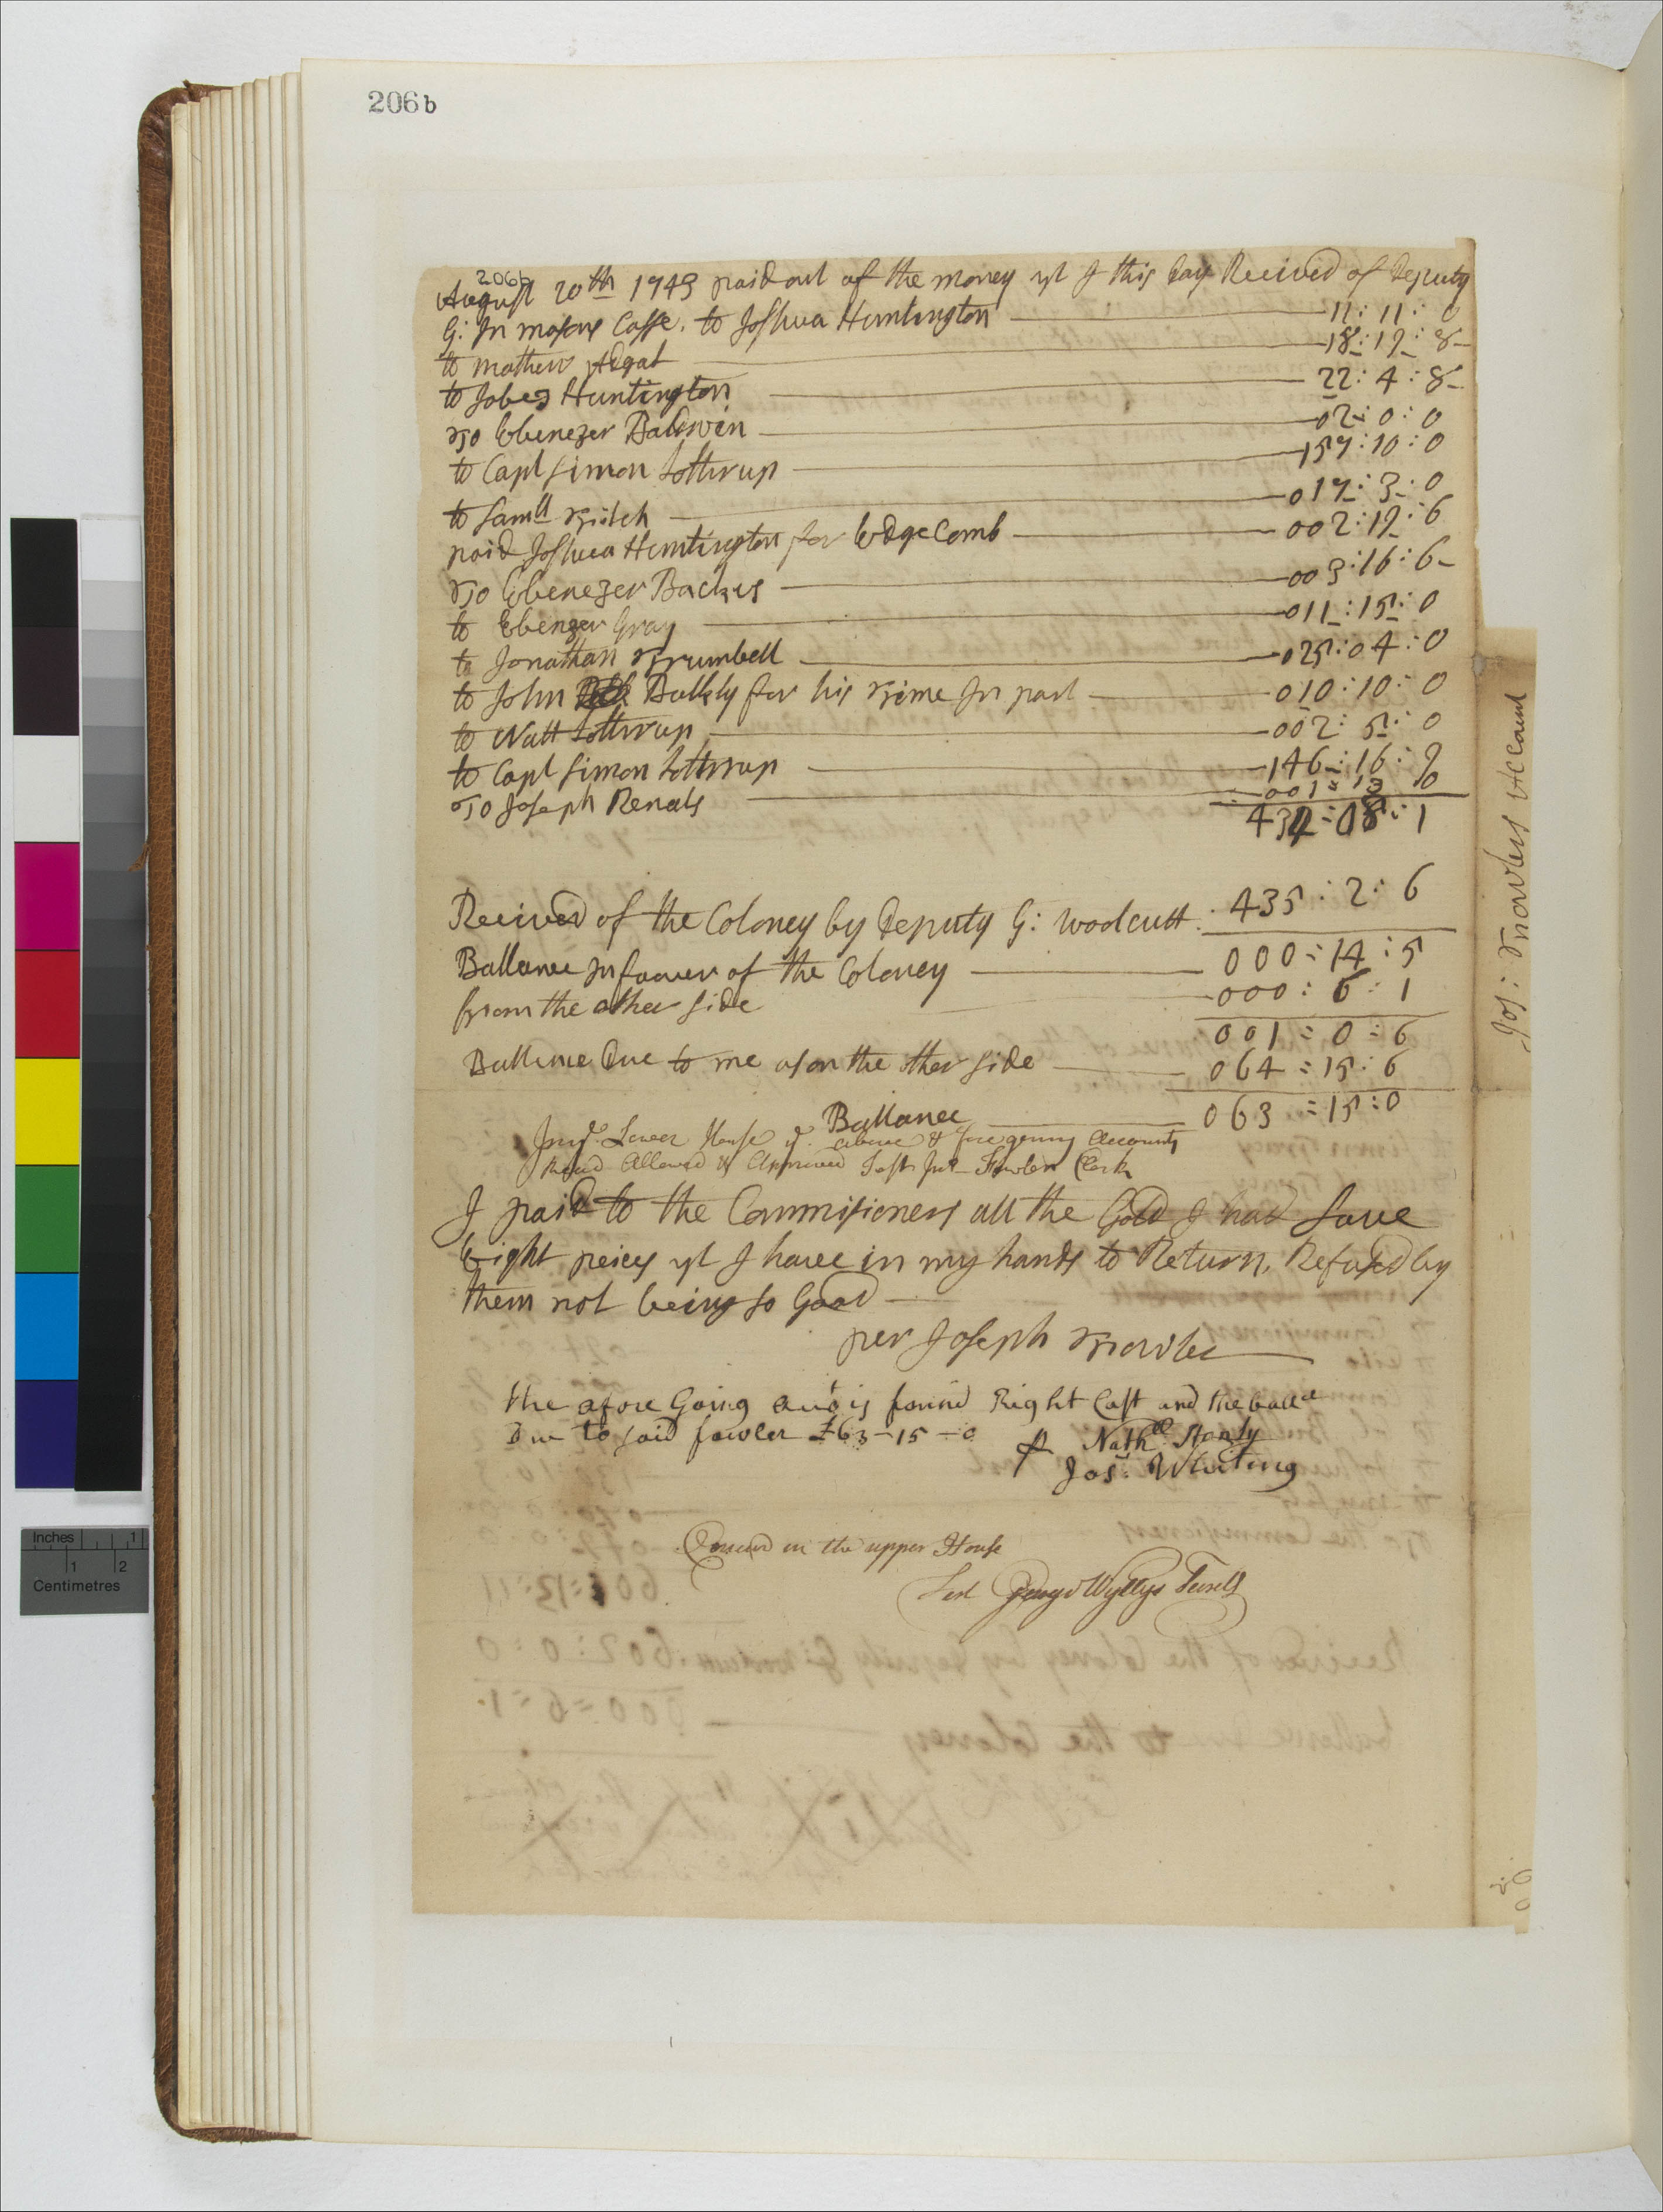 206b
206b
August 20th 1743 paid out of the money yt I this Day Recived of Deputy
G: In masons Casse. to Joshua Huntington 11: 11: 0
to mathew Adgat 18: 17: 8
to Jabez Huntington 22: 4: 8
To Ebenezer Baldwin 02: 0: 0
to Capt Simon Lothrup 157: 10: 0
to Samll 017: 3: 0
paid Joshua Huntington for Edgecomb 002: 17: 6
To Ebenezer Backus 003: 16: 6
to Ebenzer Gray 011: 15: 0
to Jonathan Trumbell 025: 04: 0
to John Bulkly for his Time In part 010: 10: 0
to Natt Lothrup 002: 5: 0
to Capt Simon Lothrup 146: 16: 9
To Joseph Renals 001: 13 0
434: 08: 1
Recived of the Coloney by Deputy G: Woolcutt 435: 2: 6
Ballance In favuer of the Coloney 000: 14: 5
from the other side 000: 6: 1
001: 0: 6
Ballance Due to me as on the other side 064: 15: 6
Ballance 063: 15: 0
In ye Lower House ye above & foregoing Accounts
Read Allowed & Approved Test Fowler Clerk
I paid to the Commisioners all the Gold I had Save
Eight peices yt I have in my hands to Return. Refused by
them not being so Good
per Joseph Fowler
the afore Going acct is found Right Cast and the ballce
Due to said fowler £63-15-0
Nathll Stanly
Jos: Whiting
Concurd in the upper House
Test George Wyllys Secrety
Jos: Fowlers Account